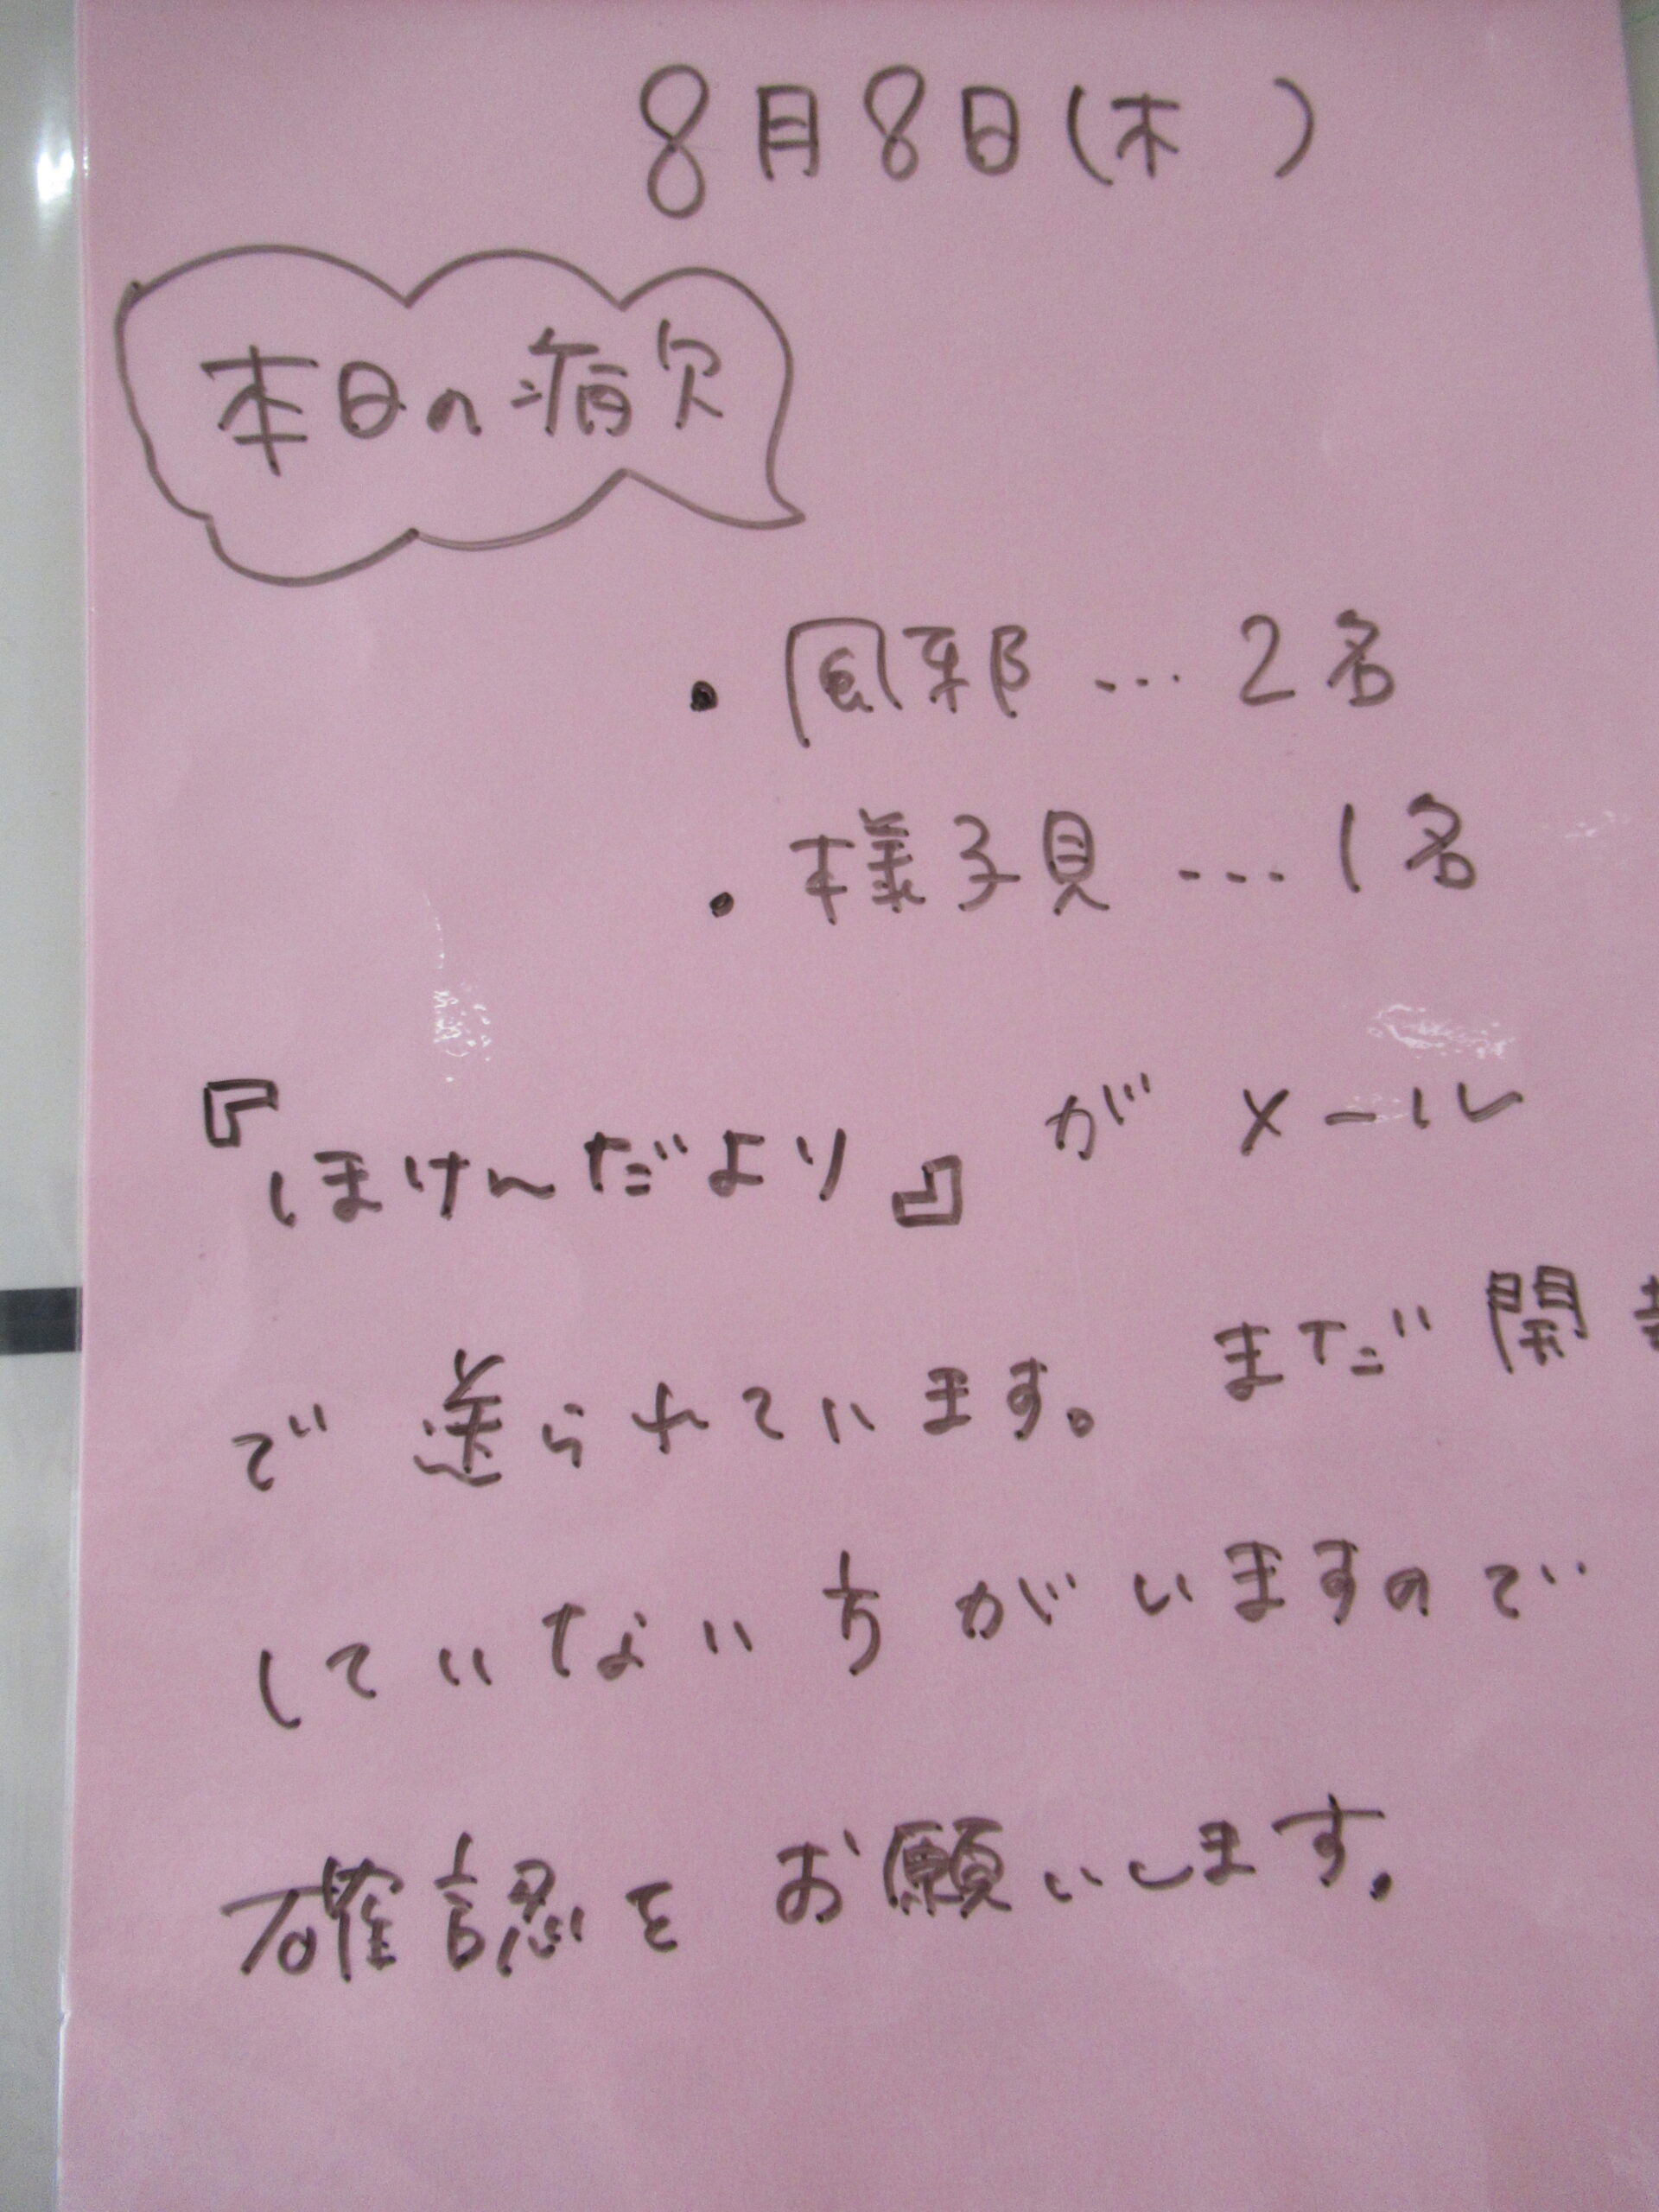 8月8日(木 )
本日の病欠
・風邪…2名
・様子見…1名
『ほけんだより』がメール
で送られています。まだ開
していない方がいますので
確認をお願いします。